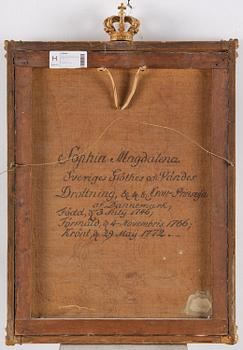 H
Sophia Magdalena
Sveriges Göthes och Vändes
Drottning, &c &c Arf-Prinsessa
af Dannemark,
Född, d. 3 July 1746;
Förmäld, d. 4 Novembris 1766;
Krönt, d. 29 May 1772.